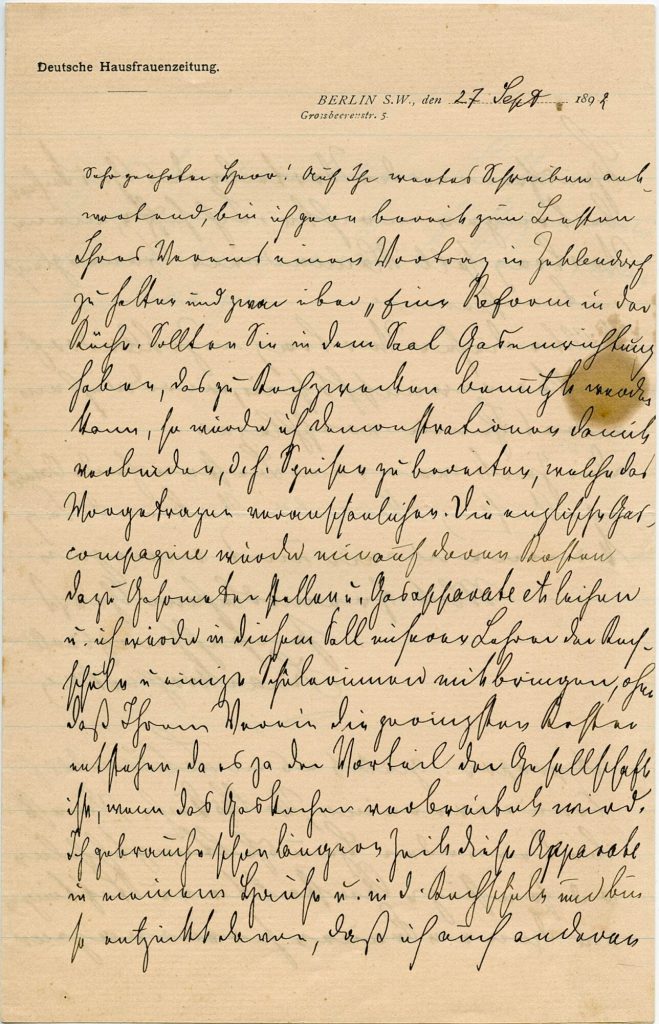 Deutsche Hausfrauenzeitung.
BERLIN S.W., den 27 Sept 1892
Grossbeerenstr. 5
Sehr geehrter Herr! Auf Ihr wertes Schreiben ant-
wortend, bin ich gern bereit zum Besten
Ihres Vereins einen Vortrag in Zehlendorf
zu halten und zwar über „Eine Reform in der
Küche. Sollten Sie in dem Saal Gaseinrichtung
haben, das zu Kochzwecken benutzt werden
kann, so würde ich Demonstrationen damit
verbinden, d.h. Speisen zu bereiten, welche das
Vorgetragene veranschaulichen. Die englische Gas-
compagnie würde mir auf deren Kosten
dazu Gasometer stellen u. Gasapparate etc leihen
u. ich würde in diesem Fall unseren Lehrer der Koch-
schule u einige Schülerinnen mitbringen, ohne
daß Ihrem Verein die geringsten Kosten
entstehen, da es ja der Vorteil der Gesellschaft
ist, wenn das Gaskochen verbreitet wird.
Ich gebrauche schon längere Zeit diese Apparate
in meinem Hause u. in d. Kochschule und bin
so entzückt davon, daß ich auch anderen